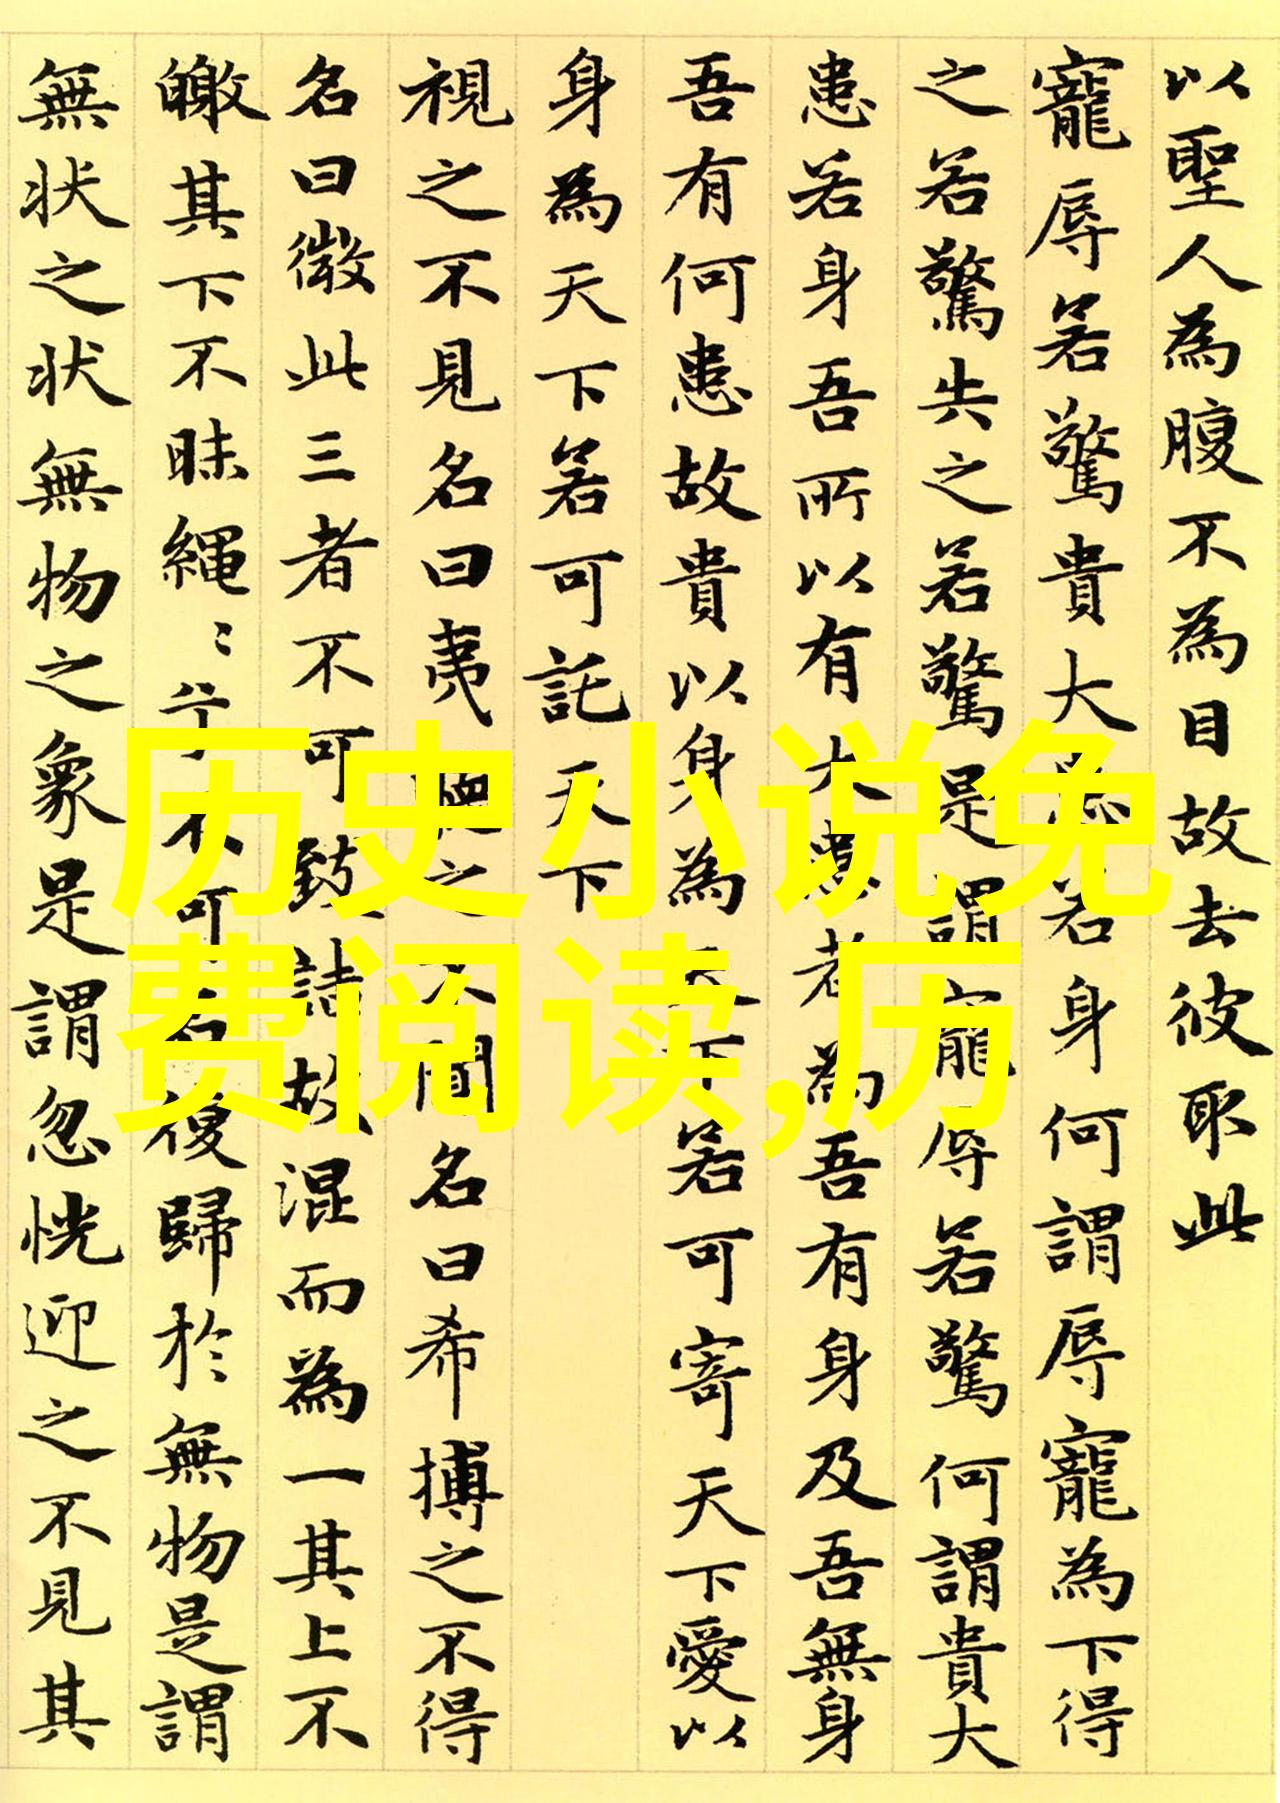 以聖人為腹不為目故去彼取此
寵辱若驚貴大患若身何謂辱寵為下得
之若驚失之若驚是謂寵辱若驚何謂貴大
患若身吾所以有大患者為吾有身及吾無身
吾有何患故貴以身為天下若可寄天下愛以
身為天下若可託天下
視之不見名曰夷聽之不聞名曰希搏之不得
名曰微此三者不可致詰故混而為一其上不
皦其下不昧繩〻兮不可名復歸於無物是謂
無状之状無物之象是謂忽恍迎之不見其
历史小说免
费阅读,历